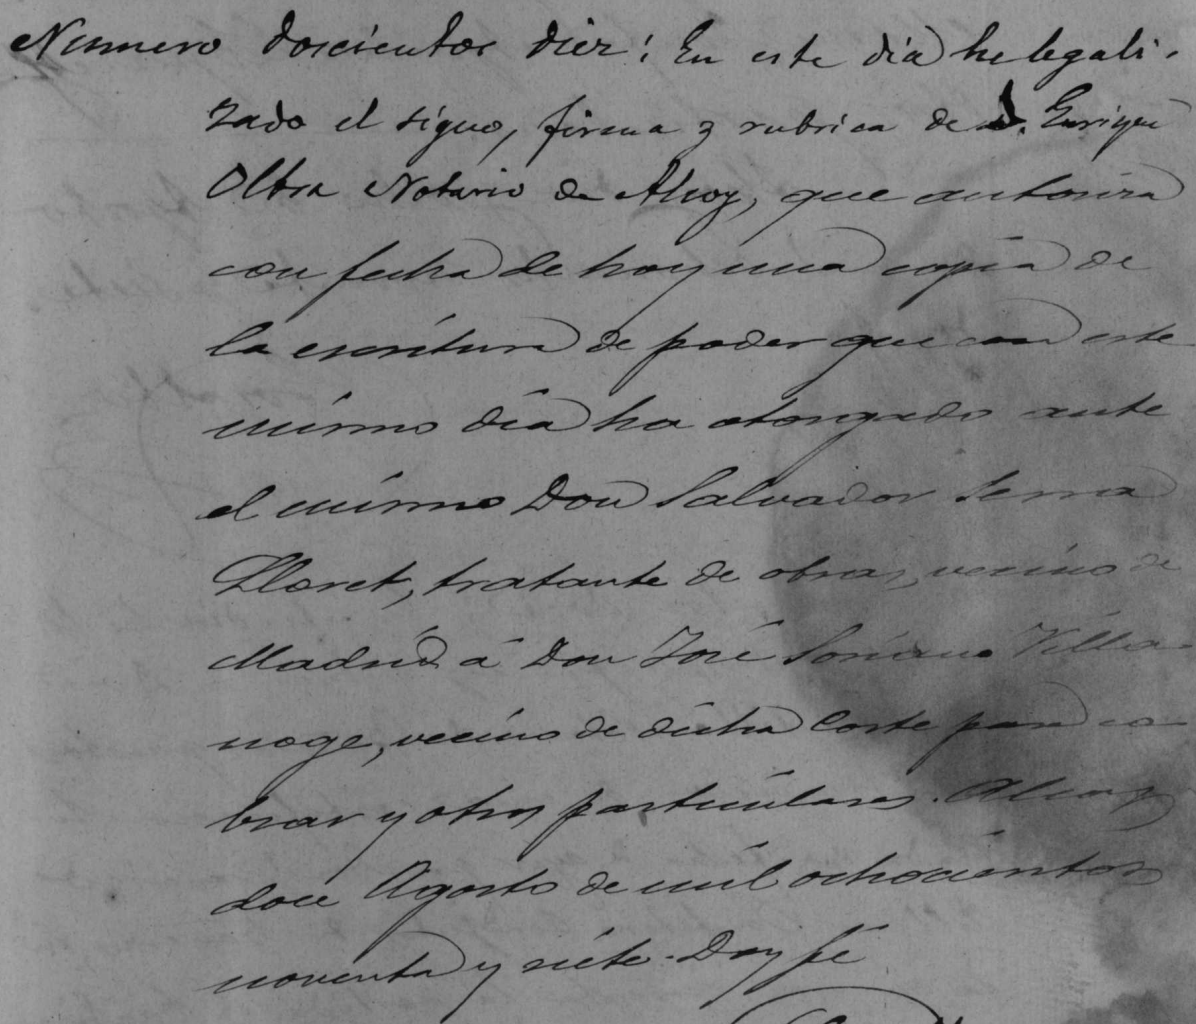 Número doscientos diez: En este día he legali-
zado el signo, firma y rubrica de D. Enrique
Oltra Notario de Alcoy, que autoriza
con fecha de hoy una copia de
la escritura de poder que con este
mismo día ha otorgado ante
el mismo Don Salvador Serra
Lloret, tratante de obras, vecino de
Madrid á Don José Soriano Villa-
noge, vecino de dicha Corte para co-
brar y otros particulares. Alcoy
doce Agosto de mil ochocientos
noventa y siete. Doy fé